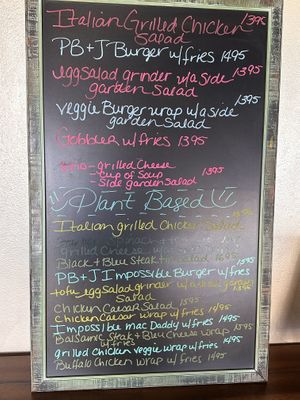 Italian Grilled Chicken 1395
Salad
PB+J Burger w/fries 1495
egg Salad grinder w/a side 1395
garden Salad
veggie Burger wrap w/a side 1395
garden Salad
Gobbler w/fries 1395
Trio - grilled Cheese
- Cup of Soup 1395
- Side garden Salad
Plant Based
Italian grilled Chicken Salad
Grilled Cheese w/
Black + Bleu Steak Salad 1695
PB+J Impossible Burger w/fries
tofu egg Salad grinder w/a side garden
Salad
Chicken Caesar Salad 1595
Chicken Caesar Wrap w/fries 1495
Impossible mac Daddy w/fries 1495
Balsamic Steak + Bleu Cheese wrap 1595
w/fries
grilled Chicken veggie wrap w/fries 1495
Buffalo Chicken wrap w/fries 1495